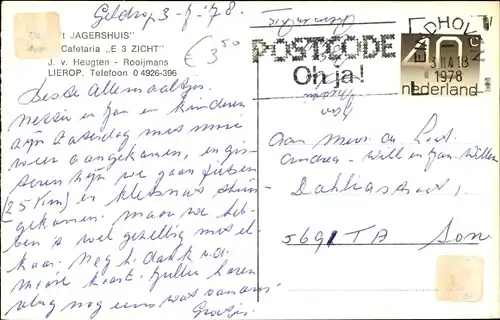 Geldrop 3-7-'78.
€ 3,50
't JAGERSHUIS"
Cafetaria „E 3 ZICHT"
J. v. Heugten - Rooijmans
LIEROP. Telefoon 0 4926-396
POSTCODE
Oh ja!
1978
nederland
Beste Allemaaltjes.
en Jan en kinderen
zijn Zaterdag met mooi
weer aangekomen, en gis-
teren zijn we gaan fietsen
(25 Km) en kletsnat thuis
gekomen. maar we heb-
ben 't wel gezellig met el-
kaar. Nog h. dank v.d.
mooie kaart. Jullie horen
vlug nog eens wat van ons.
Groetjes.
Aan
Andrea - Will en Jan-Willem
Dahliastraat 1,
5691 TA Son